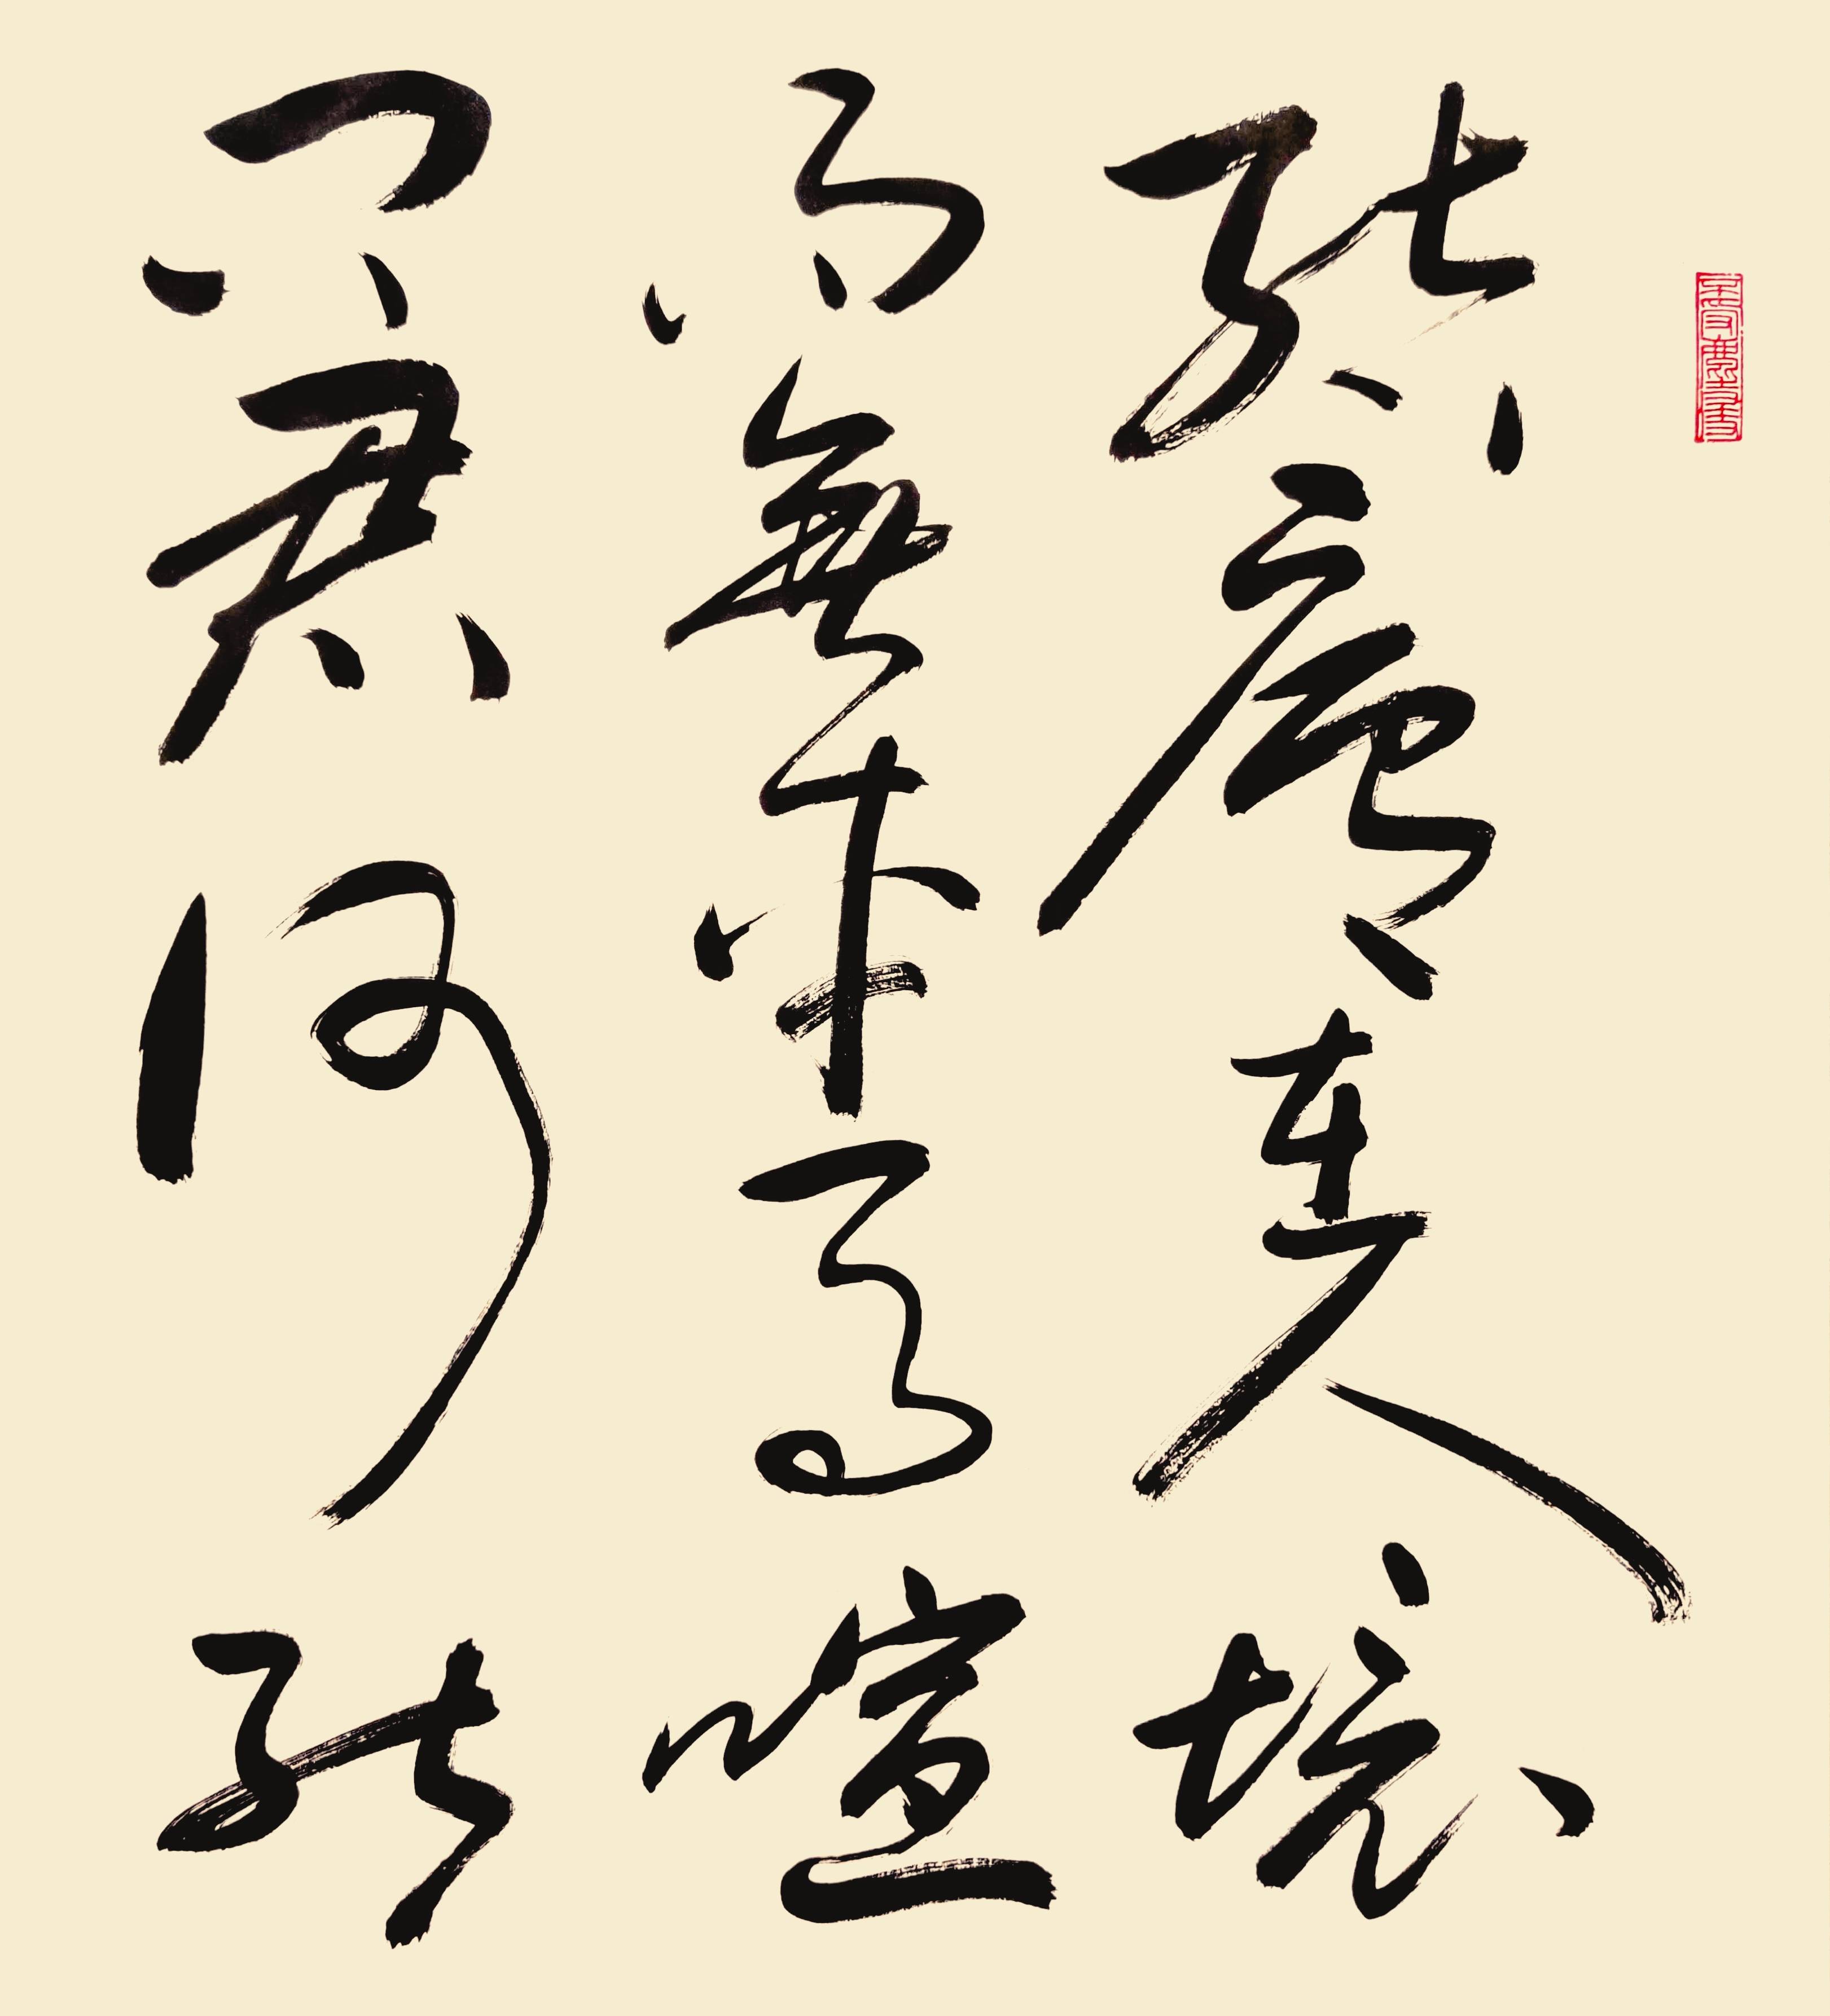 結廬在人境
而無車馬喧
問君何能